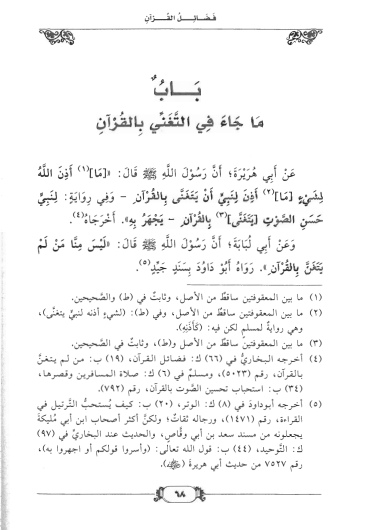 فَضَائِلُ القُرْآنِ
بَابٌ
مَا جَاءَ فِي التَّغَنِّي بِالقُرْآنِ
عَنْ أَبِي هُرَيْرَةَ؛ أَنَّ رَسُولَ اللَّهِ ﷺ قَالَ: «[مَا](١) أَذِنَ اللَّهُ
لِشَيْءٍ [مَا](٢) أَذِنَ لِنَبِيٍّ أَنْ يَتَغَنَّى بِالقُرْآنِ – وَفِي رِوَايَةٍ: لِنَبِيٍّ
حَسَنِ الصَّوْتِ [يَتَغَنَّى](٣) بِالقُرْآنِ – يَجْهَرُ بِهِ». أَخْرَجَاهُ(٤).
وَعَنْ أَبِي لُبَابَةَ؛ أَنَّ رَسُولَ اللَّهِ ﷺ قَالَ: «لَيْسَ مِنَّا مَنْ لَمْ
يَتَغَنَّ بِالقُرْآنِ». رَوَاهُ أَبُو دَاوُدَ بِسَنَدٍ جَيِّدٍ(٥).
(١) ما بين المعقوفتين ساقطٌ من الأصل، وثابتٌ في (ط) والصحيحين.
(٢) ما بين المعقوفتين ساقطٌ من الأصل، وفي (ط): (لشيءٍ أذنه لنبيٍّ يتغنَّى)،
وهي روايةٌ لمسلمٍ لكن فيه: (كَأَذَنِهِ).
(٣) ما بين المعقوفتين ساقطٌ من الأصل، وثابت في (ط) والصحيحين.
(٤) أخرجه البخاريُّ في (٦٦) ك: فضائل القرآن، (١٩) ب: من لم يتغنَّ
بالقرآن، رقم (٥٠٢٣)، ومسلم في (٦) ك: صلاة المسافرين وقصرها،
(٣٤) ب: استحباب تحسين الصَّوت بالقرآن، رقم (٧٩٢).
(٥) أخرجه أبوداود في (٨) ك: الوتر، (٢٠) ب: كيف يُستحبُّ التَّرتيل في
القراءة، رقم (١٤٧١)، ورجاله ثقاتٌ؛ ولكنَّ أكثر أصحاب ابن أبي مُليكة
يجعلونه من مسند سعد بن أبي وقَّاص، والحديث عند البخاريِّ في (٩٧)
ك: التَّوحيد، (٤٤) ب: قول الله تعالى: (وأسروا قولكم أو اجهروا به)،
رقم ٧٥٢٧ من حديث أبي هريرة (ﷺ).
٦٨